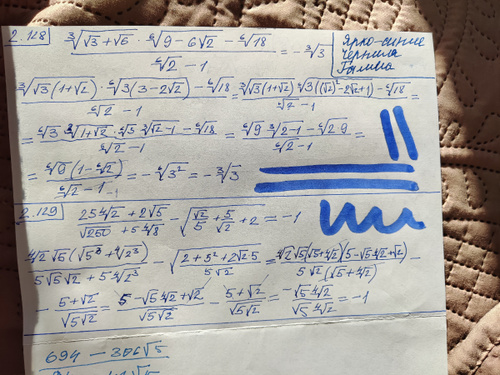 2.128 (∛(√3+√6) · ⁶√(9-6√2) - ⁶√18) / (⁶√2 - 1) = -∛3
Ярко-синие
чернила
Галина
(∛(√3(1+√2)) · ⁶√(3(3-2√2)) - ⁶√18) / (⁶√2 - 1) = (∛(√3(1+√2)) ⁶√(3((√2)²-2√2+1)) - ⁶√18) / (⁶√2 - 1) =
= (⁶√3 ∛(1+√2) · ⁶√3 ∛(√2-1) - ⁶√18) / (⁶√2 - 1) = (⁶√9 ∛(2-1) - ⁶√(2·9)) / (⁶√2 - 1) =
= (⁶√9 (1-⁶√2)) / (⁶√2 - 1) = -⁶√(3²) = -∛3
2.129 (25⁴√2 + 2√5) / (√250 + 5⁴√8) - √(√2/5 + 5/√2 + 2) = -1
(⁴√2 √5 (√5³ + ⁴√2³)) / (5√5√2 + 5⁴√2³) - √((2+5²+2√2·5) / (5√2)) = (⁴√2 √5 (√5+⁴√2)(5-√5⁴√2+√2)) / (5√2 (√5+⁴√2)) -
- (5+√2) / (√5√√2) = (5-√5⁴√2+√2) / (√5√√2) - (5+√2) / (√5√√2) = (-√5⁴√2) / (√5⁴√2) = -1
694 - 306√5